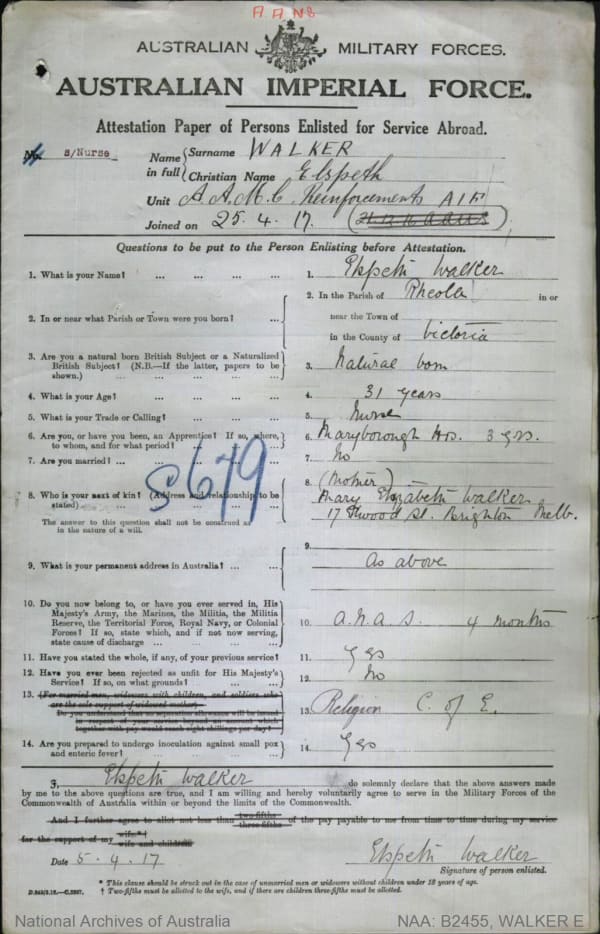 A A N S
AUSTRALIAN MILITARY FORCES.
AUSTRALIAN IMPERIAL FORCE.
Attestation Paper of Persons Enlisted for Service Abroad.
No. s/Nurse
Name in full { Surname WALKER
Christian Name Elspeth
Unit A.A.M.C. Reinforcements AIF
Joined on 25.4.17.
Questions to be put to the Person Enlisting before Attestation.
1. What is your Name? ... ... ... ... 1. Elspeth Walker
2. In or near what Parish or Town were you born? ... 2. In the Parish of Rheola in or
near the Town of
in the County of Victoria
3. Are you a natural born British Subject or a Naturalized
British Subject? (N.B.—If the latter, papers to be
shown.) ... ... ... ... 3. Natural born
4. What is your Age? ... ... ... ... 4. 31 years
5. What is your Trade or Calling? ... ... ... 5. Nurse
6. Are you, or have you been, an Apprentice? If so, where,
to whom, and for what period? ... ... 6. Maryborough Hos. 3 yrs.
7. Are you married? ... ... ... ... 7. No
S679
8. Who is your next of kin? (Address and relationship to be
stated) ... ... ... 8. (Mother)
Mary Elizabeth Walker
17 Elwood St. Brighton Melb.
The answer to this question shall not be construed as
in the nature of a will.
9. What is your permanent address in Australia? ... ... 9. As above
10. Do you now belong to, or have you ever served in, His
Majesty's Army, the Marines, the Militia, the Militia
Reserve, the Territorial Force, Royal Navy, or Colonial
Forces? If so, state which, and if not now serving,
state cause of discharge ... ... ... 10. A.N.A.S. 4 months
11. Have you stated the whole, if any, of your previous service? 11. Yes
12. Have you ever been rejected as unfit for His Majesty's
Service? If so, on what grounds? ... ... 12. No
13. (For married men, widowers with children, and soldiers who
are the sole support of widowed mother—
Do you understand that no separation allowance will be issued
in respect of your service beyond an amount which
together with pay would reach eight shillings per day? 13. Religion C. of E.
14. Are you prepared to undergo inoculation against small pox
and enteric fever? ... ... ... 14. Yes
I, Elspeth Walker do solemnly declare that the above answers made
by me to the above questions are true, and I am willing and hereby voluntarily agree to serve in the Military Forces of the
Commonwealth of Australia within or beyond the limits of the Commonwealth.
And I further agree to allot not less than two-fifths three-fifths of the pay payable to me from time to time during my service
for the support of my wife* wife and children
Date 5.4.17 Elspeth Walker
Signature of person enlisted.
* This clause should be struck out in the case of unmarried men or widowers without children under 18 years of age.
† Two-fifths must be allotted to the wife, and if there are children three-fifths must be allotted.
National Archives of Australia NAA: B2455, WALKER E